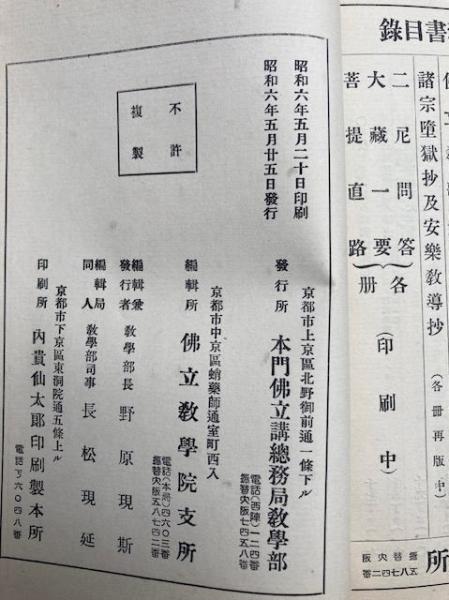 書目錄
諸宗墮獄抄及安樂敎導抄（各冊再版中）
二尼問答
大藏一要
菩提直路
各冊（印刷中）
所
振替大阪五八七四二番
昭和六年五月二十日印刷
昭和六年五月廿五日發行
不許複製
京都市上京區北野御前通一條下ル
發行所 本門佛立講總務局敎學部
電話（西陣）一二四番
振替大阪七四五八番
京都市中京區蛸藥師通室町西入
編輯所 佛立敎學院支所
電話（本局）四六〇三番
振替大阪五八七四二番
編輯兼發行者 敎學部長 野原現斯
編輯局同人 敎學部司事 長松現延
京都市下京區東洞院通五條上ル
印刷所 內貴仙太郎印刷製本所
電話下六〇四八番